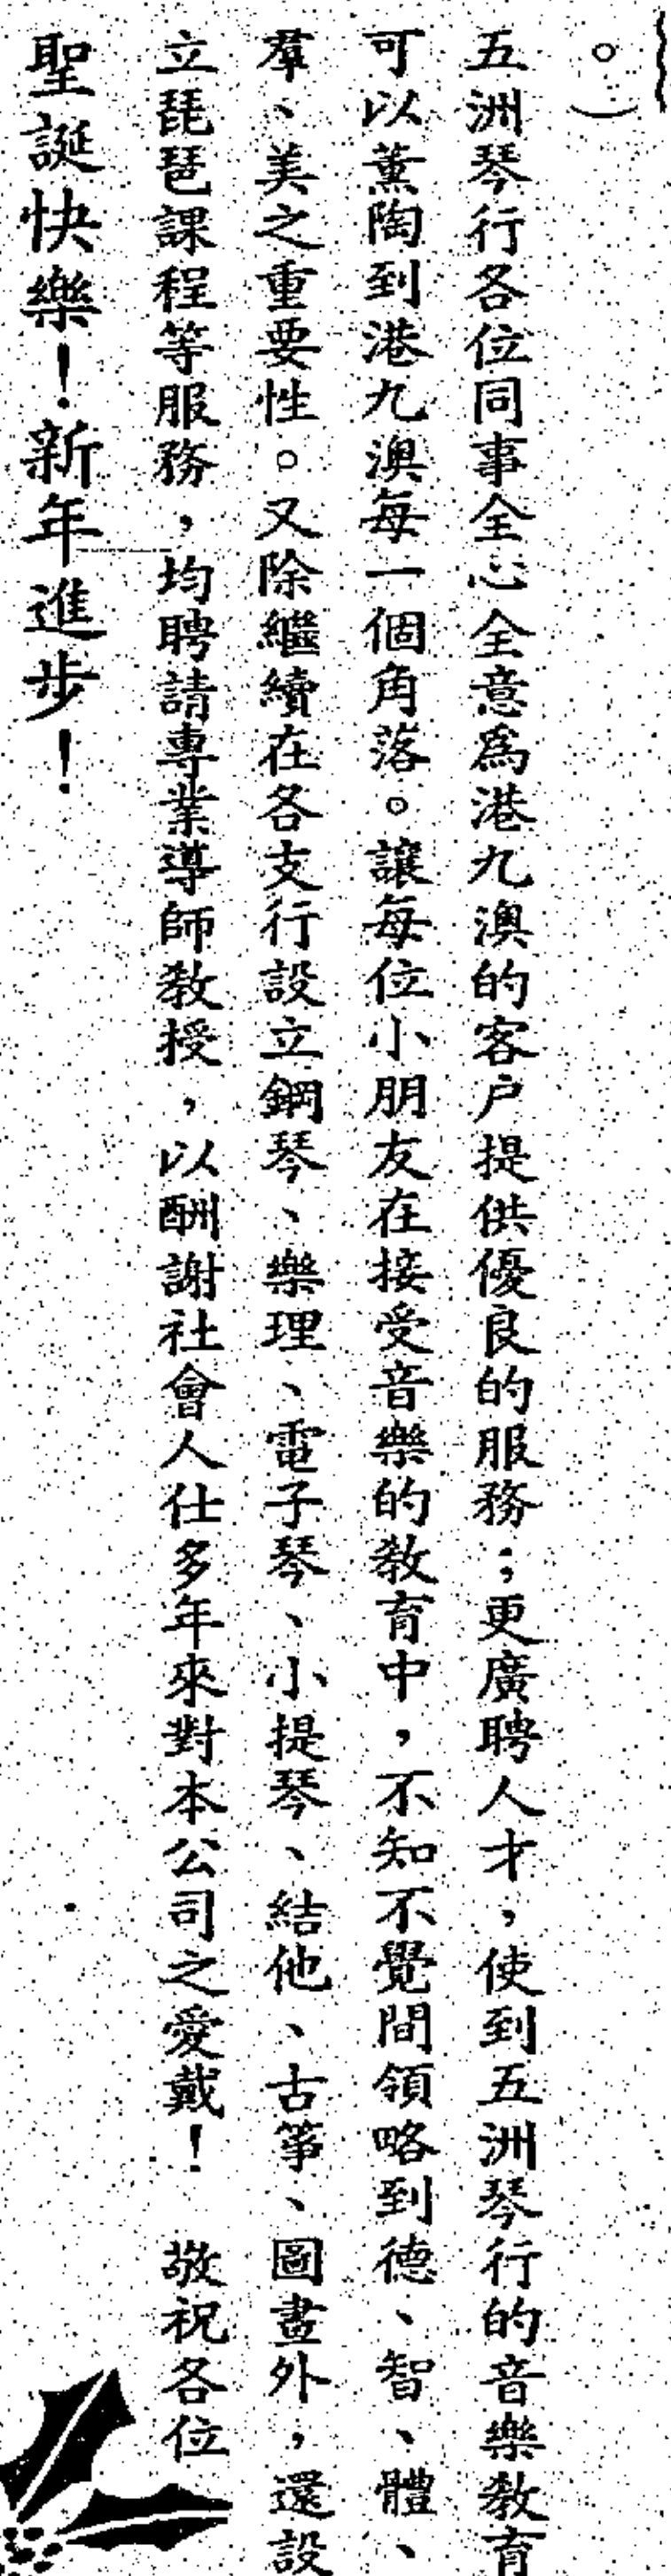 。）
五洲琴行各位同事全心全意爲港九澳的客户提供優良的服務；更廣聘人才，使到五洲琴行的音樂教育
可以薰陶到港九澳每一個角落。讓每位小朋友在接受音樂的教育中，不知不覺間領略到德、智、體、
羣、美之重要性。又除繼續在各支行設立鋼琴、樂理、電子琴、小提琴、結他、古箏、圖畫外，還設
立琵琶課程等服務，均聘請專業導師教授，以酬謝社會人仕多年來對本公司之愛戴！　敬祝各位
聖誕快樂！新年進步！